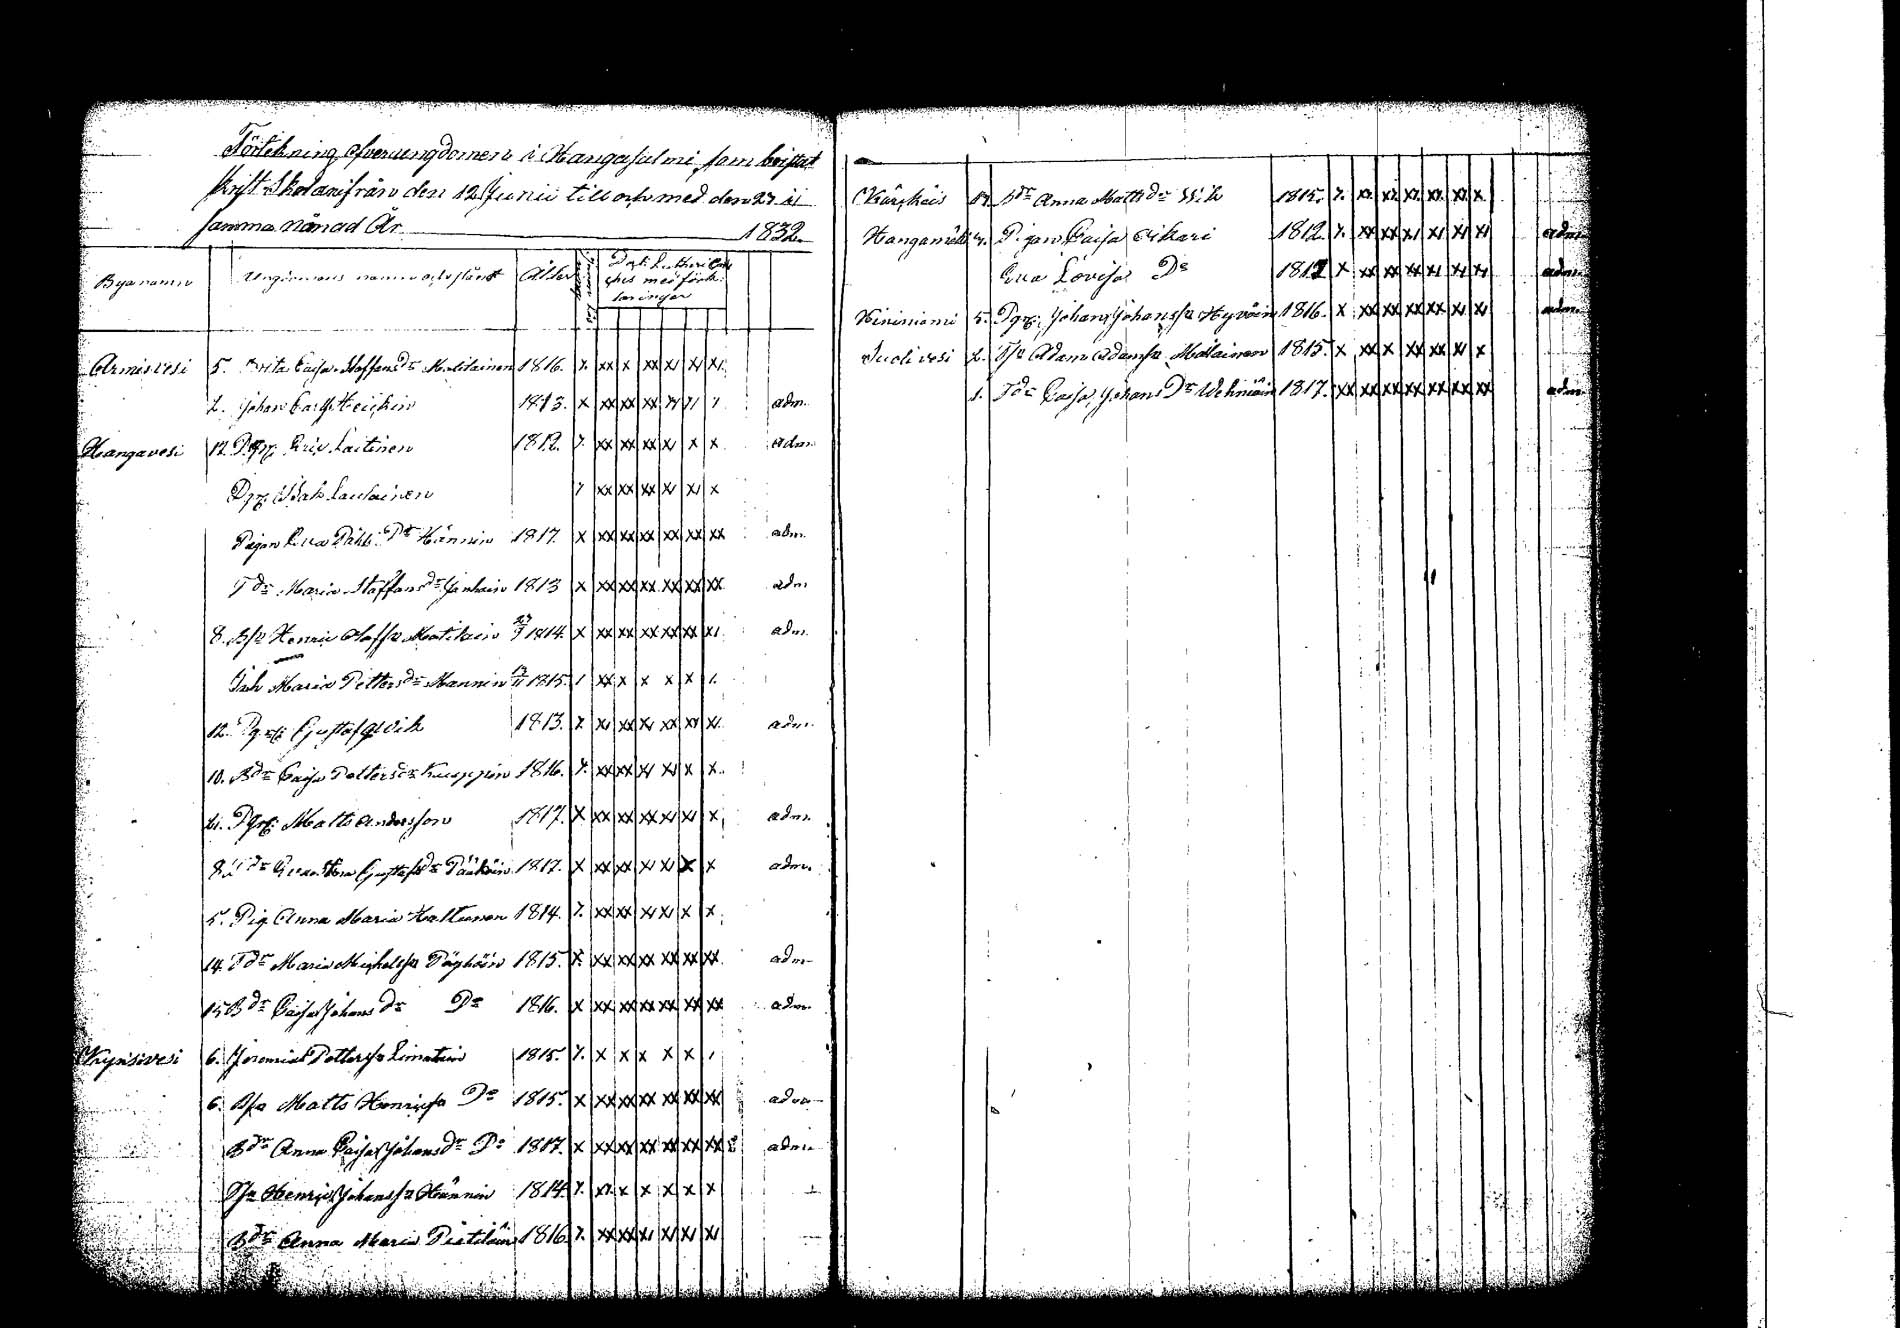 Förtekning öfver ungdomen i Kangasalmi, som bevistat
Skrift Skolan ifrån den 12 Junii till och med den 27 i
samma månad År 1832.
Byanamn Ungdomens namn och stånd Ålder Dr M. Lutheri Cate
ches med förk
laringar
Armisvesi 5. Brita Caisa Staffans dr Matilainen 1816. x xx x xx xi xi xi
2. Johan Carls Heickin 1813. x xx xx xx xi xi i adm.
Hangavesi 12. Dgr: Eric Laitinen 1812. x xx xx xx xi x x adm
Dgr: Isak Laulainen x xx xx xx xi xi x
Pigan Eva Påhls Dr Hännin 1817. x xx xx xx xx xx xx adm.
T dr Maria Staffans dr Janhuin 1813 x xx xx xx xx xx xx adm
8. B/n Henric Olafs/n Matilain 1814. x xx xx xx xx xx xi adm.
Inh Maria Petters dr Mannin 1815. i xx x x x x i.
12. Dgr: Gustaf Wik 1813. x xi xx xi xx xi xi adm.
10. B dr Caisa Petters dr Kauppin 1816. x xx xx xi xi x x
Dgr: Matts Andersson 1817. x xx xx xx xi xi x adm.
8. T dr Gustafs dr Pääköin 1817. x xx xx xi xi x x adm.
5. Pig Anna Maria Hattunen 1814. x xx xx xi xi x x
14. T dr Maria Michels Pöyhöin 1815. x xx xx xx xx xx xx adm
15 B dr Caisa Johans dr Do 1816. x xx xx xx xx xx xx adm
Kynsivesi 6. Jeremias Petters/n Limatin 1815. x x x x x x i
6. B/n Matts Henrics/n Do 1815. x xx xx xx xx xx xx adm
B dr Anna Caisa Johans dr Do 1817. x xx xx xx xx xx xx adm.
T/n Henric Johans/n Hännin 1814. x xi x x x x x
B dr Anna Maria Pietiläin 1816. x xx xx xi xi xi xi
Kärkäis B dr Anna Matts dr Wik 1815. x xi xi xi xi xi x
Kangamäki Pigan Caisa Oikari 1812. x xx xx xi xi xi xi adm.
Eva Lovisa Do 1812 x xx xx xi xi xi xi adm.
Kiviniemi 5. Dgr: Johan Johans/n Hyvöin 1816. x xx xx xx xx xi xi adm.
Suolivesi 2. T/n Adam Adams/n Matilainen 1815. x xx x xx xx xi x
1. T dr Caisa Johans Dr Wehniäin 1817. xx xx xx xx xx xx xx adm.